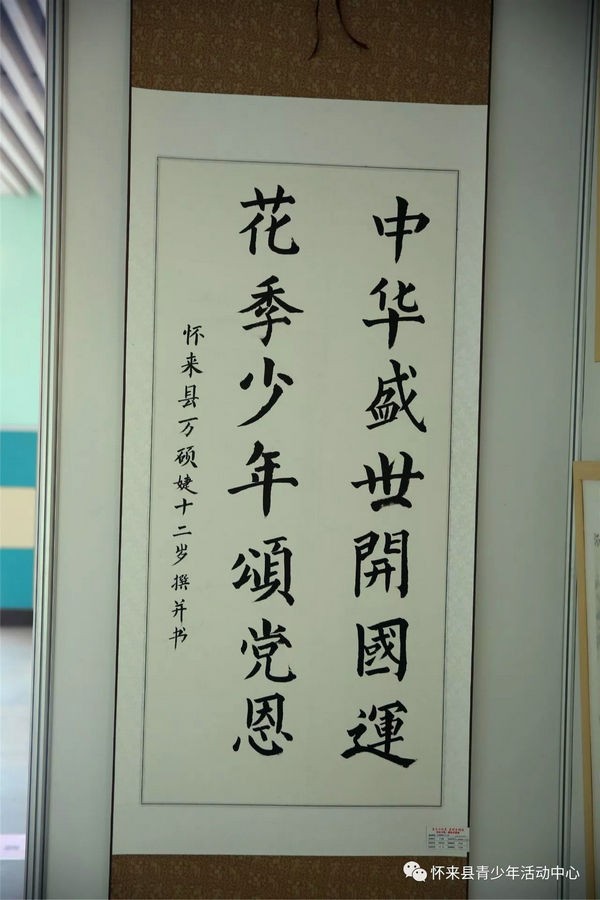 中华盛世開國運
花季少年頌党恩
怀来县万硕婕十二岁撰并书
怀来县青少年活动中心